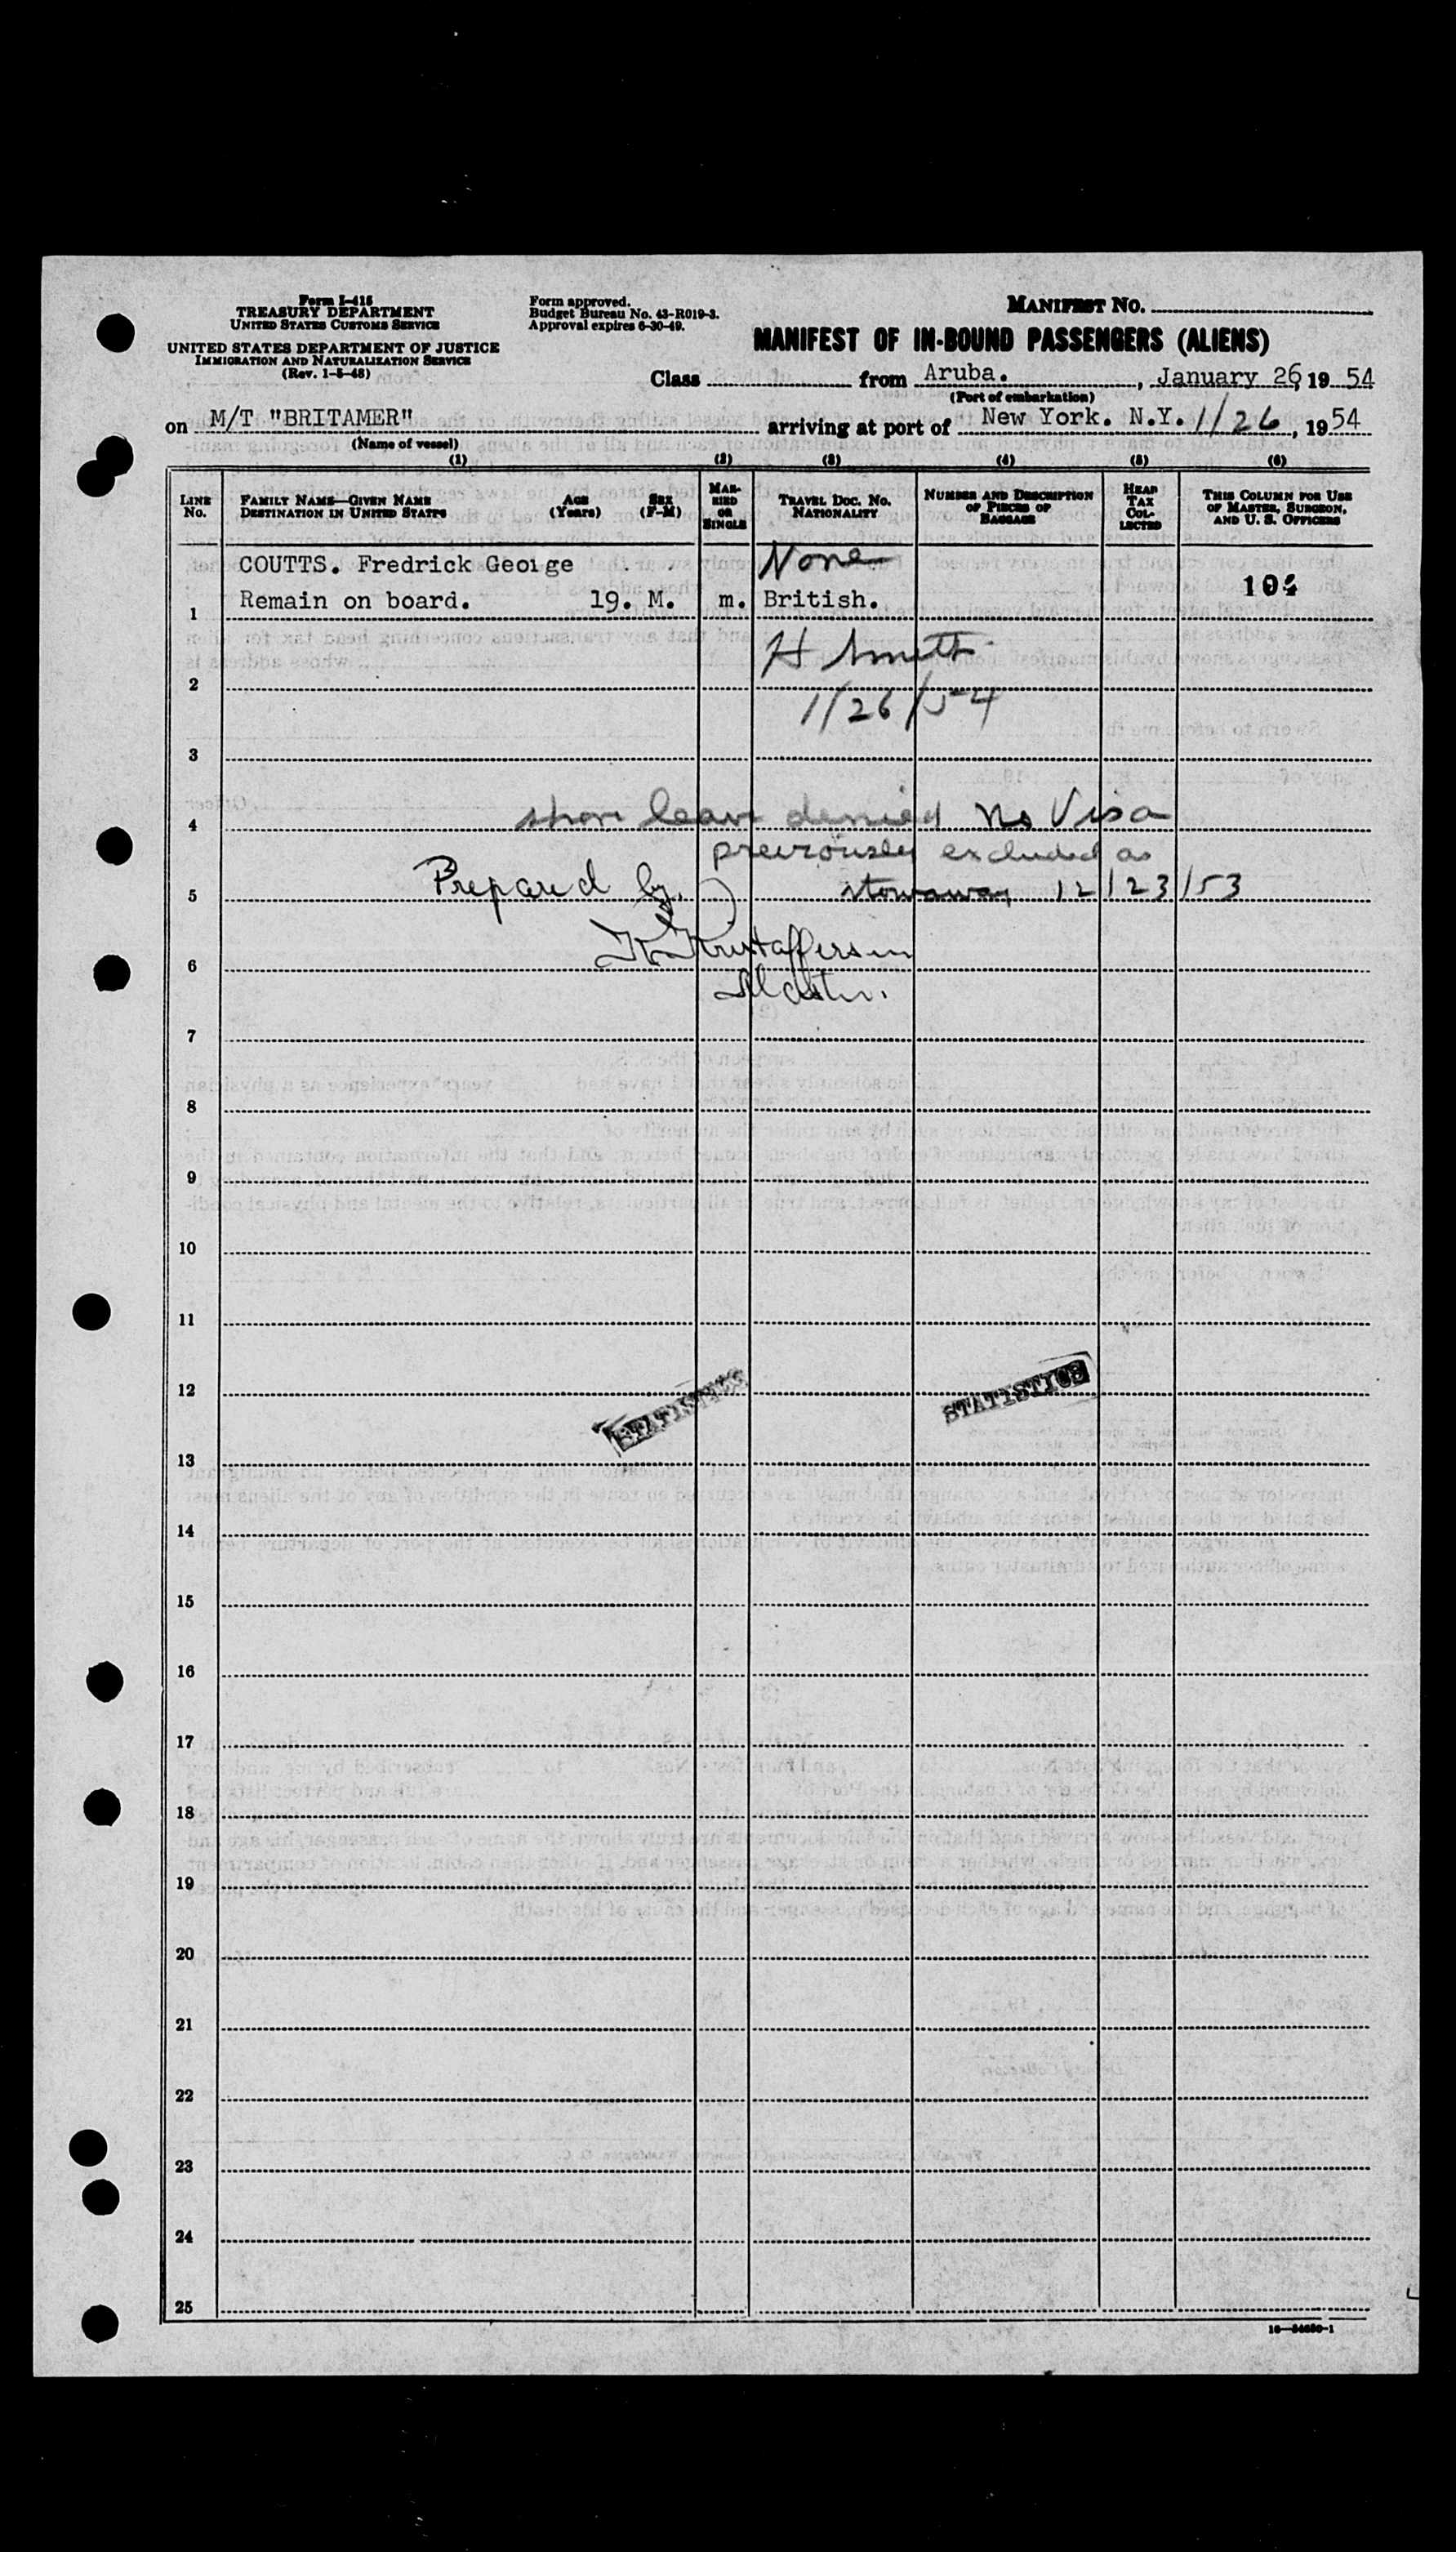 Form I-415
TREASURY DEPARTMENT
UNITED STATES CUSTOMS SERVICE
UNITED STATES DEPARTMENT OF JUSTICE
IMMIGRATION AND NATURALIZATION SERVICE
(Rev. 1-5-48)
Form approved.
Budget Bureau No. 43-R019-3.
Approval expires 6-30-49.
MANIFEST NO.
MANIFEST OF IN-BOUND PASSENGERS (ALIENS)
Class from Aruba. , January 26, 19 54
(Port of embarkation)
on M/T "BRITAMER" arriving at port of New York. N.Y. 1/26, 19 54
(Name of vessel)
(1) (2) (3) (4) (5) (6)
LINE No. FAMILY NAME—GIVEN NAME DESTINATION IN UNITED STATES AGE (Years) SEX (F-M) MARRIED OR SINGLE TRAVEL DOC. No. NATIONALITY NUMBER AND DESCRIPTION OF PIECES OF BAGGAGE HEAD TAX COLLECTED THIS COLUMN FOR USE OF MASTER, SURGEON, AND U. S. OFFICERS
COUTTS. Fredrick George None
1 Remain on board. 19. M. m. British.
H Smith
2
1/26/54
3
4 shore leave denied No Visa
previously excluded as
5 Prepared by. stowaway 12/23/53
6
Master.
7
8
9
10
11
12
STATISTICS STATISTICS
13
14
15
16
17
18
19
20
21
22
23
24
25